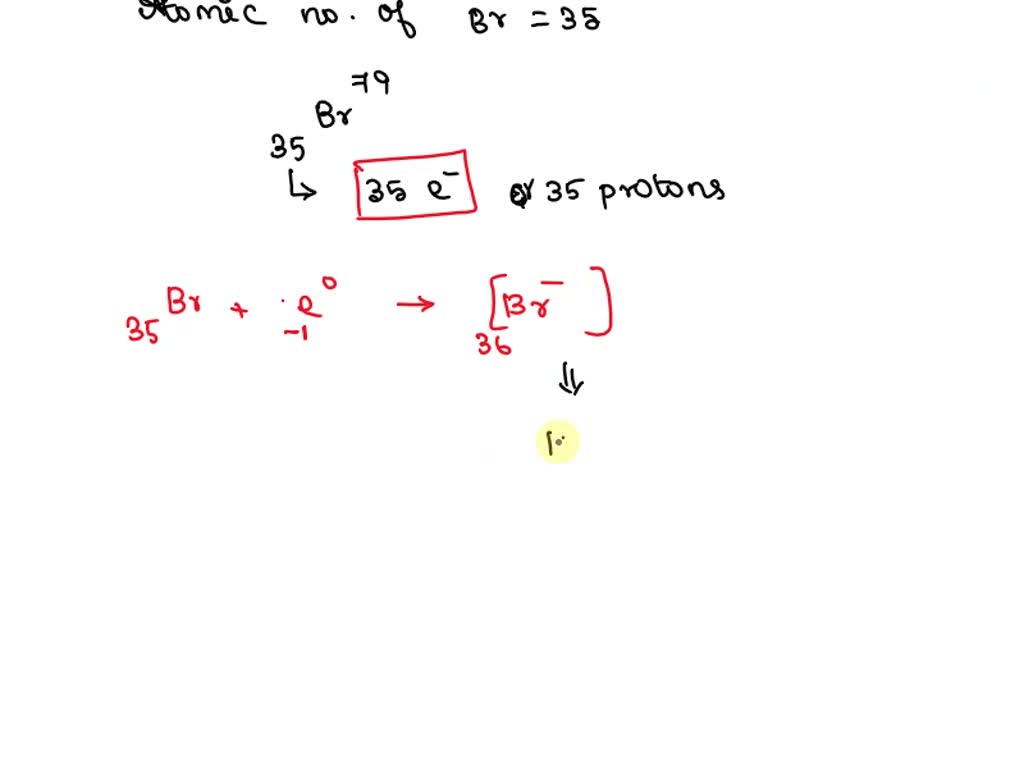 Atomic no. of Br = 35
35 Br 79
↳ 35 e⁻ or 35 protons
35 Br + -1 e 0 → 36 [Br⁻]
⇓